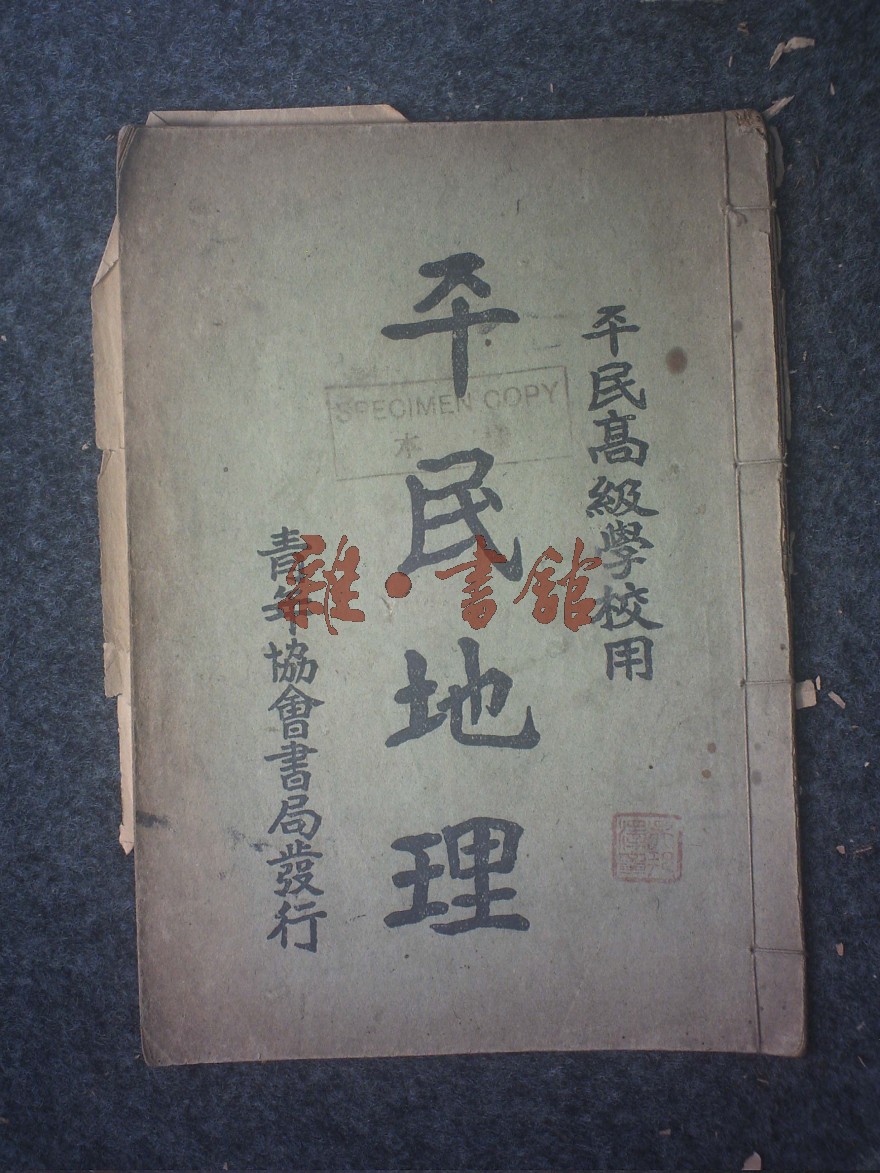 平民高級學校用
平民地理
SPECIMEN COPY
本
青年協會書局發行
雜·書館